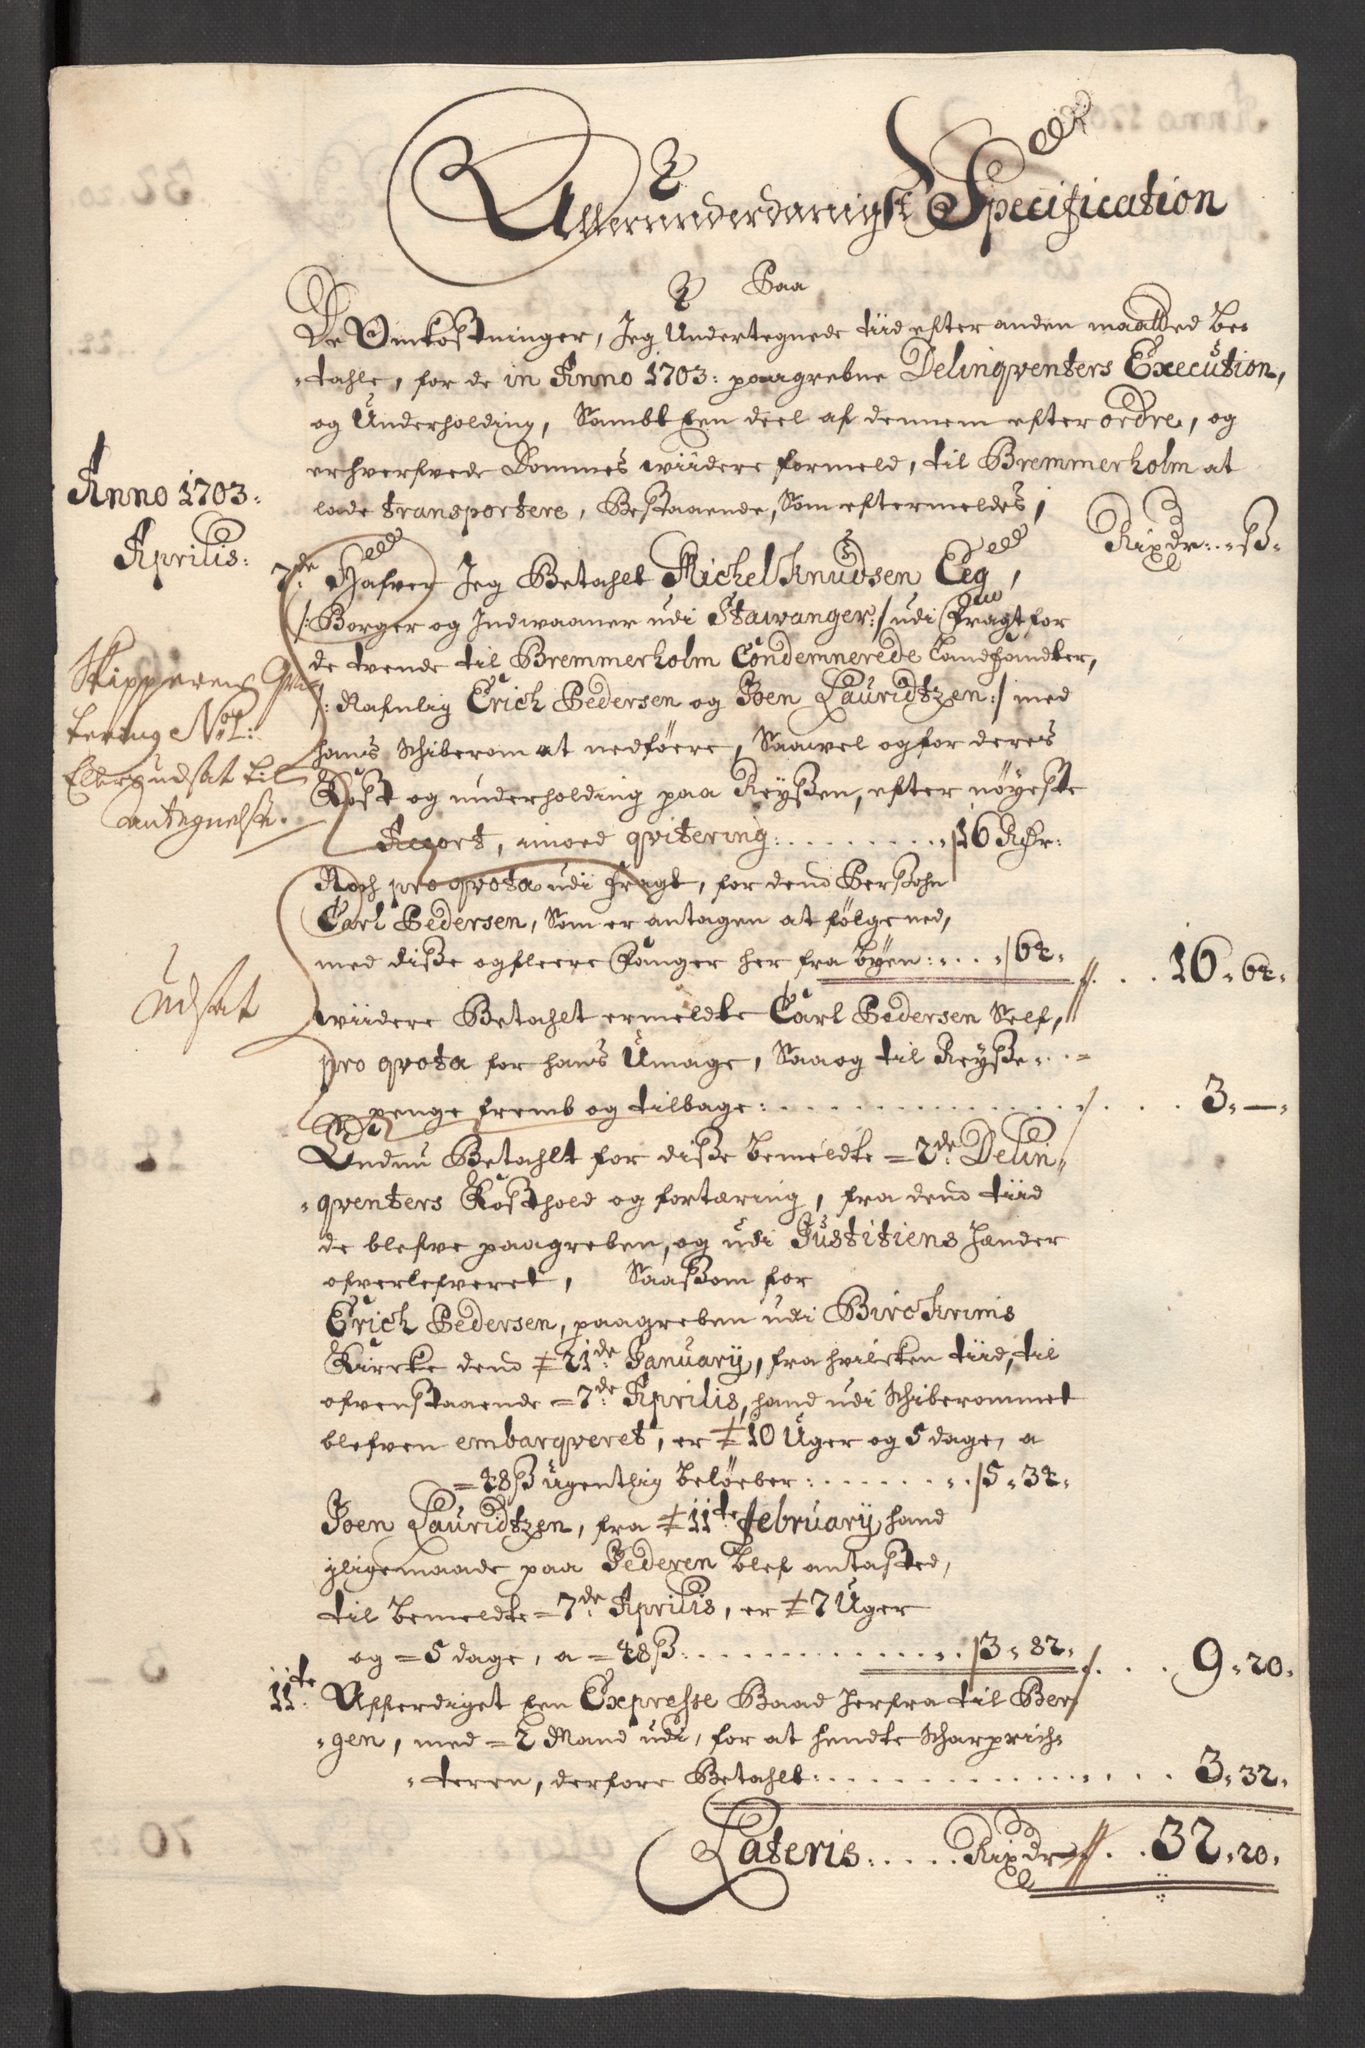 Allerunderdanigst Specification
Paa
De Omkostninger, Jeg Undertegnede tiid efter anden maatted be-
tahle, for de in Anno 1703: paagrebne Delinqventers Execution,
og Underholding, Sambt Een deel af dennem efter ordre, og
erhverfvede Dommes wiidere formeld, til Bremmerholm at
lade transportere, Bestaaende, Som eftermeldes,
Anno 1703:
Aprilis:
Rixdr: ß
7de: Hafver Jeg Betahlt Michel Knudsen Eeg,
/:Borger og Indwaaner udi Stawanger:/ udi Fragt for
de tvende til Bremmerholm Condemnerede
/: Nafnlig Erich Pedersen og Joen Lauridtzen:/ med
hans Schiberom at nedføere, Saavel og for deres
Kost og underholding paa Reyßen, efter nøyeste
Accort, imod qvitering: . . . . . . . . 16 Rdr:
Skipperens Qvi-
tering No 1:
Ellers udsat til
antegnelse.
Noch pro qvota udi fragt, for dend Persohn
Carl Pedersen, Som er antagen at følge ned,
med diße og fleere Fanger her fra byen: . . . 64. . . 16. 64.
Udsat
wiidere Betahlt ermeldte Carl Pedersen Self,
pro qvota for hans Umage, Saa og til Reyße-
penge fremb og tilbage: . . . . . . . . 3. —.
Endnu Betahlt for diße bemeldte 2de: Delin-
qventers Kosthold og fortæring, fra dend tiid
de blefve paagreben, og udi Justitiens Hænder
ofverlefveret, Saaßom for
Erich Pedersen, paagreben udi Birckrims
Kircke dend 21de January, fra hvilcken tiid, til
ofvenstaaende 7de: Aprilis, hand udi Schiberommet
blefven embarqveret, er 10 Uger og 5 dage, a
48 ß ugentlig beløeber: . . . . . . 5. 34.
Joen Lauridtzen, fra 11te february, hand
jligemaade paa Jederen blef antasted,
til bemeldte 7de: Aprilis, er 7 Uger
og 5 dage, a 48 ß: . . . . . . . . 3. 82. . . . 9. 20.
11te: Afferdiget Een Expresse Baad herfra til Ber-
gen, med 2 Mand udi, for at hendte Scharprich-
teren, derfore Betahlt: . . . . . . . . 3. 32.
Lateris: . . . . . Rixdr . . 32. 20.